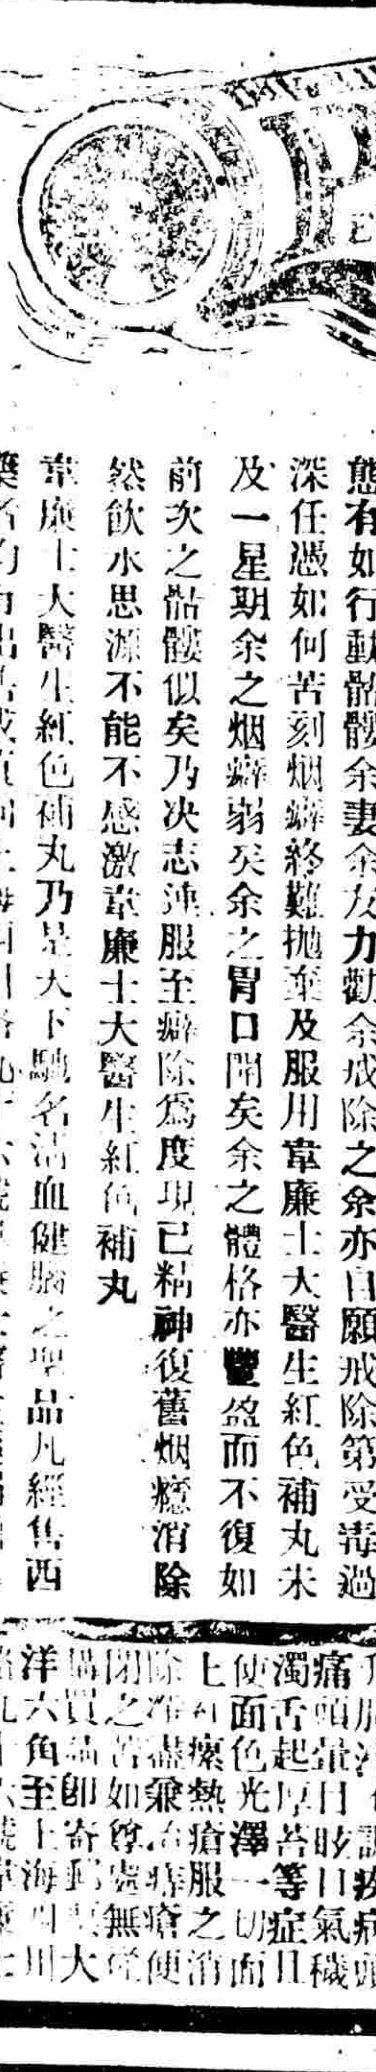 態有如行動骷髏余妻余友力勸余戒除之余亦自願戒除第受毒過
深任憑如何苦刻烟癖終難拋棄及服用韋廉士大醫生紅色補丸未
及一星期余之烟癖弱矣余之胃口開矣余之體格亦豐盈而不復如
前次之骷髏似矣乃决志連服至癖除爲度現已精神復舊烟癮消除
然飲水思源不能不感激韋廉士大醫生紅色補丸
韋廉士大醫生紅色補丸乃是天下馳名清血健腦之聖品凡經售西
痛頭暈目眩口氣穢
濁舌起厚苔等症且
使面色光澤一切面
上瘰熱瘡服之消
除淨盡兼治痔瘡便
閉之苦如尊處無從
購買請卽寄郵票大
洋六角至上海四川